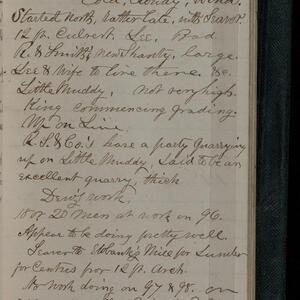 Cold, Cloudy, Wind.
Started North, rather late, with Seavor.
12 ft. Culvert. Lee. Bad
R. & Smith's, new Shanty, large.
Lee & Wife to live there. &c.
Little Muddy, Not very high.
King commencing grading.
Up on Line.
R. S. & Co's. have a party quarrying
up on Little Muddy, said to be an
excellent quarry, thick
Drew's work,
18 or 20 men at work on 96.
Appear to be doing pretty well.
Seavor to Mill for Lumber
for Centres for 12 ft. Arch.
No work doing on 97 & 98. on